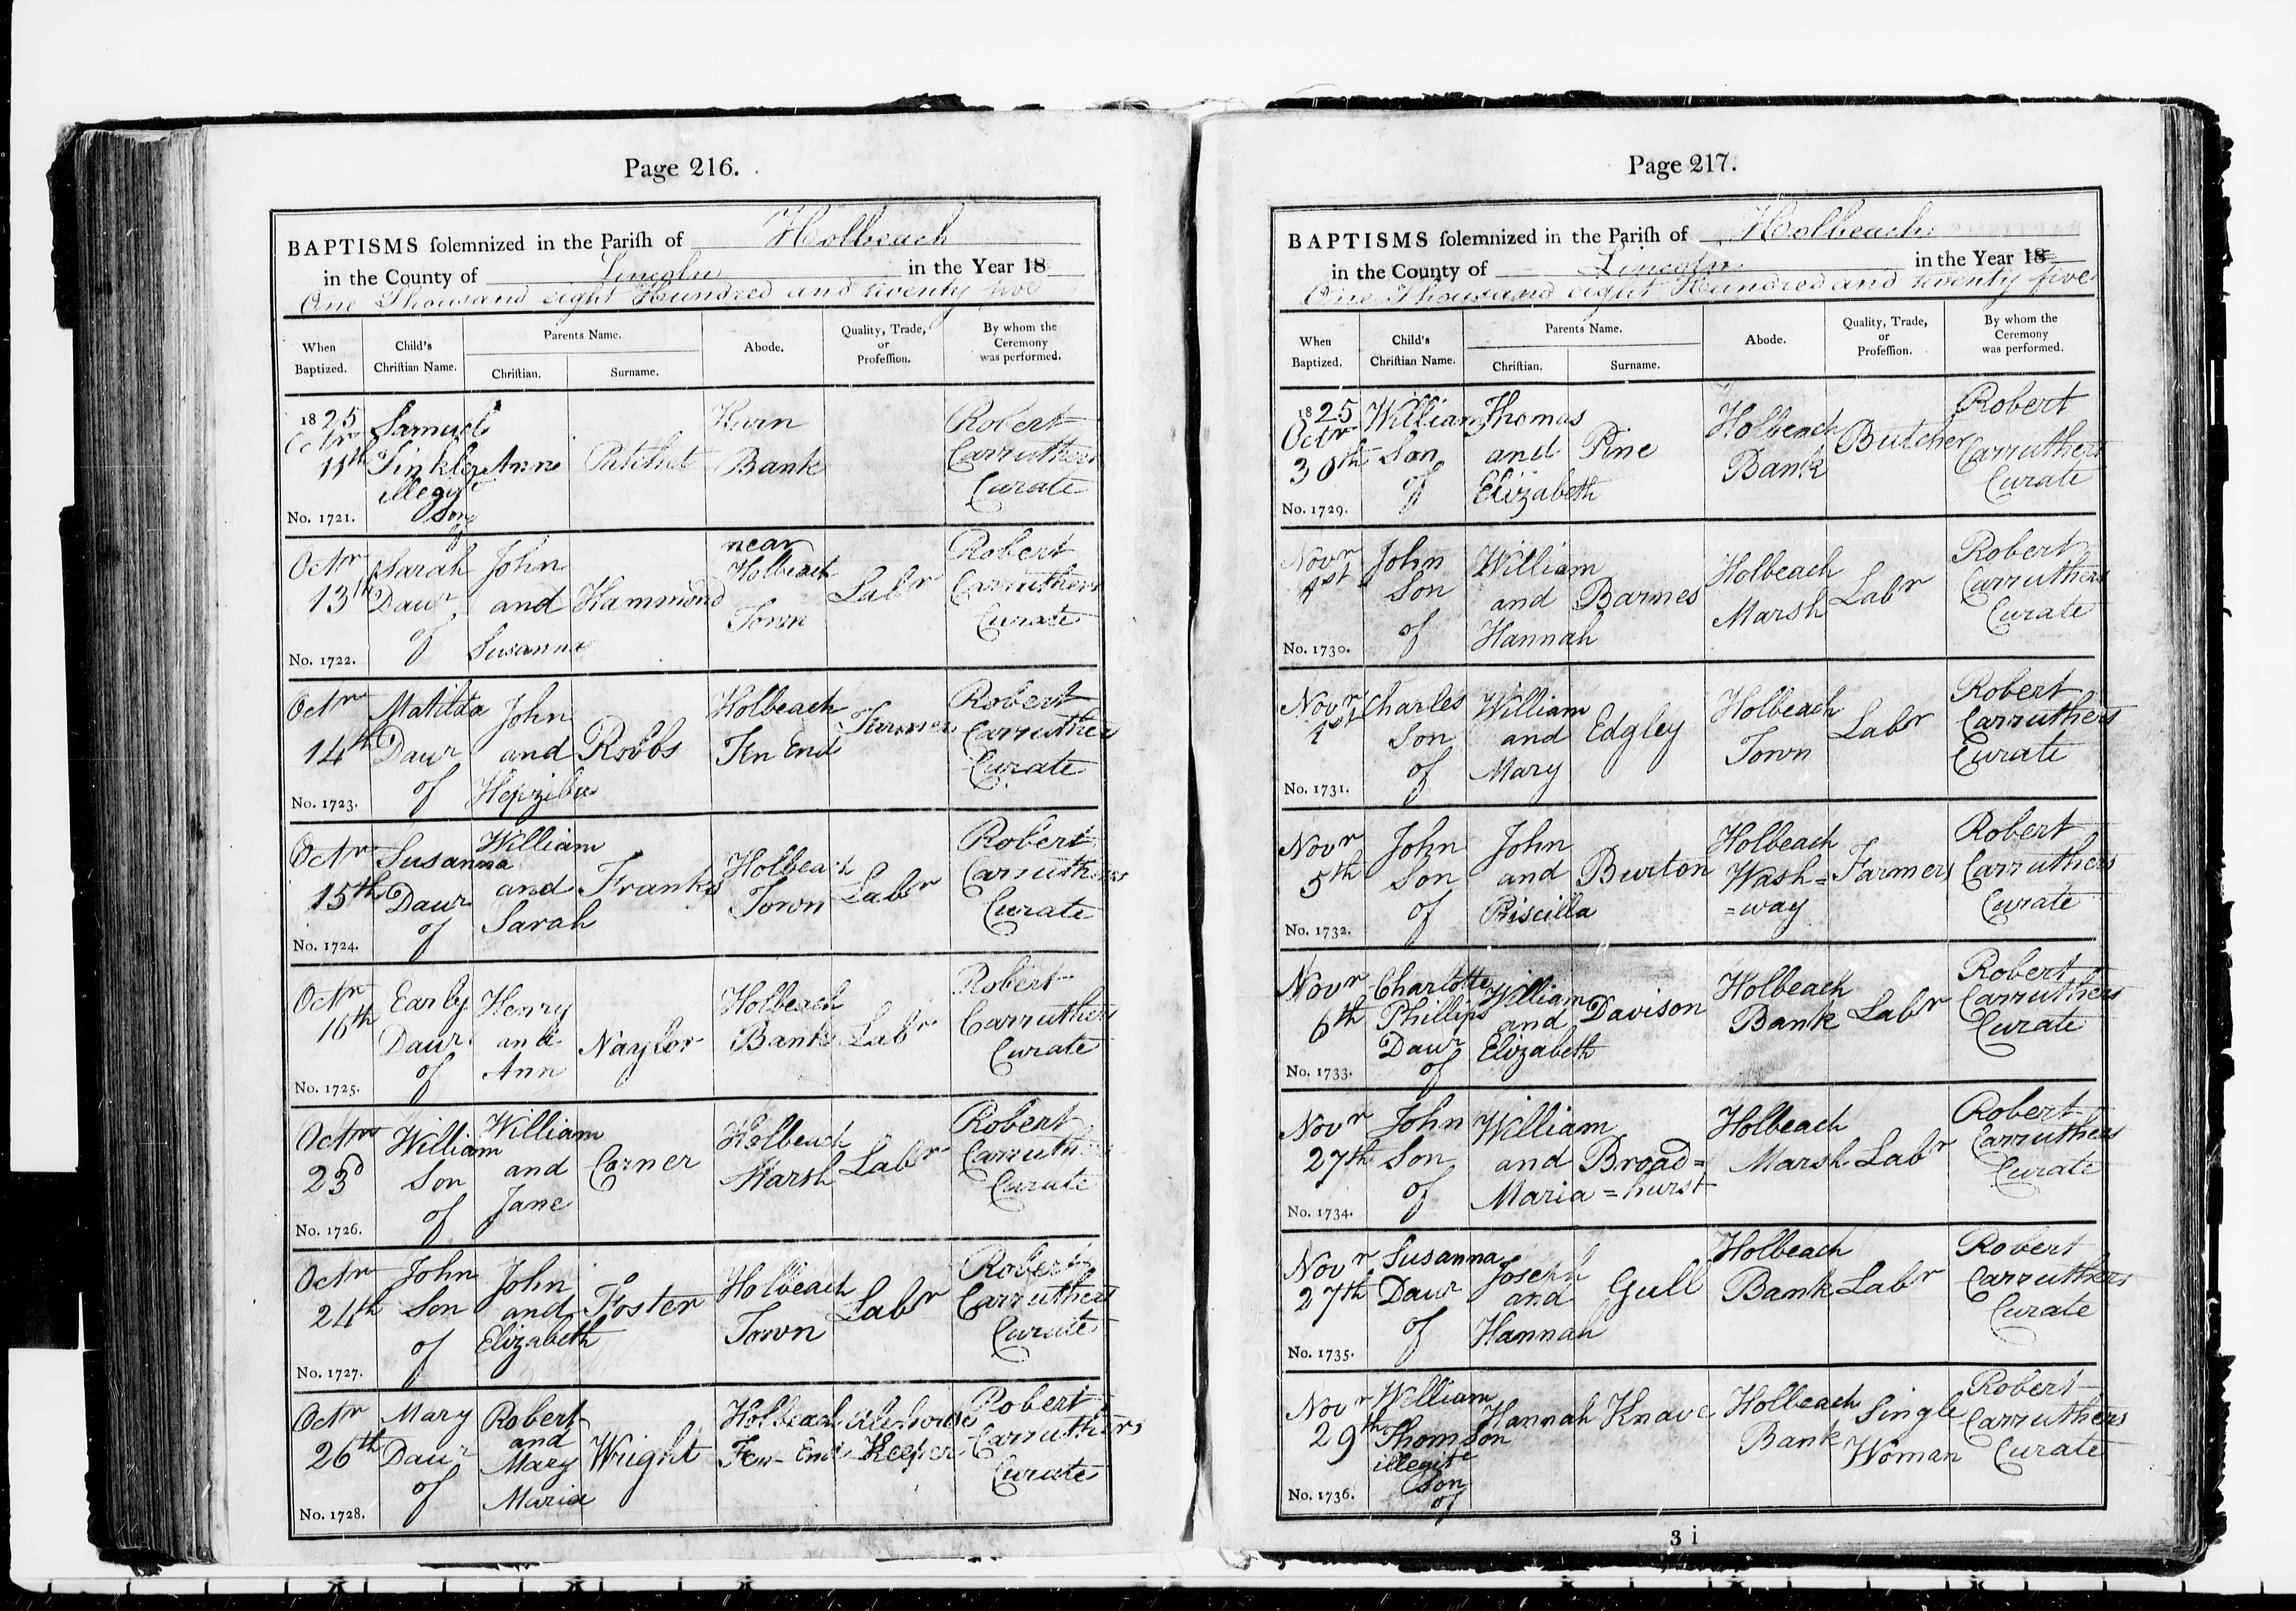 Page 216.
BAPTISMS solemnized in the Parish of Holbeach
in the County of Lincoln in the Year 18
One Thousand eight Hundred and twenty five
When Baptized. Child's Christian Name. Parents Name. Christian. Surname. Abode. Quality, Trade, or Profession. By whom the Ceremony was performed.
1825 Octr 11th Samuel Tinkler illegite Son of Anne Bank Robert Carruthers Curate
No. 1721.
Octr 13th Sarah Daur of John and Susanna Hammond near Holbeach Town Labr Robert Carruthers Curate
No. 1722.
Octr 14th Matilda Daur of John and Hepziba Robbs Holbeach Fen End Farmer Robert Carruthers Curate
No. 1723.
Octr 15th Susanna Daur of William and Sarah Franks Holbeach Town Labr Robert Carruthers Curate
No. 1724.
Octr 16th Early Daur of Henry and Ann Naylor Holbeach Bank Labr Robert Carruthers Curate
No. 1725.
Octr 23d William Son of William and Jane Corner Holbeach Marsh Labr Robert Carruthers Curate
No. 1726.
Octr 24th John Son of John and Elizabeth Foster Holbeach Town Labr Robert Carruthers Curate
No. 1727.
Octr 26th Mary Daur of Robert and Mary Maria Wright Holbeach Fen End Alehouse Keeper Robert Carruthers Curate
No. 1728.
Page 217.
BAPTISMS solemnized in the Parish of Holbeach
in the County of Lincoln in the Year 18
One Thousand eight Hundred and twenty five
When Baptized. Child's Christian Name. Parents Name. Christian. Surname. Abode. Quality, Trade, or Profession. By whom the Ceremony was performed.
1825 Octr 30th William Son of Thomas and Elizabeth Pine Holbeach Bank Butcher Robert Carruthers Curate
No. 1729.
Novr 1st John Son of William and Hannah Barnes Holbeach Marsh Labr Robert Carruthers Curate
No. 1730.
Novr 1st Charles Son of William and Mary Edgley Holbeach Town Labr Robert Carruthers Curate
No. 1731.
Novr 5th John Son of John and Priscilla Burton Holbeach Wash= =way Farmer Robert Carruthers Curate
No. 1732.
Novr 6th Charlotte Phillips Daur of William and Elizabeth Davison Holbeach Bank Labr Robert Carruthers Curate
No. 1733.
Novr 27th John Son of William and Maria Broad= =hurst Holbeach Marsh Labr Robert Carruthers Curate
No. 1734.
Novr 27th Susanna Daur of Joseph and Hannah Gull Holbeach Bank Labr Robert Carruthers Curate
No. 1735.
Novr 29th William Thomson illegite Son of Hannah Knave Holbeach Bank Single Woman Robert Carruthers Curate
No. 1736.
3 i